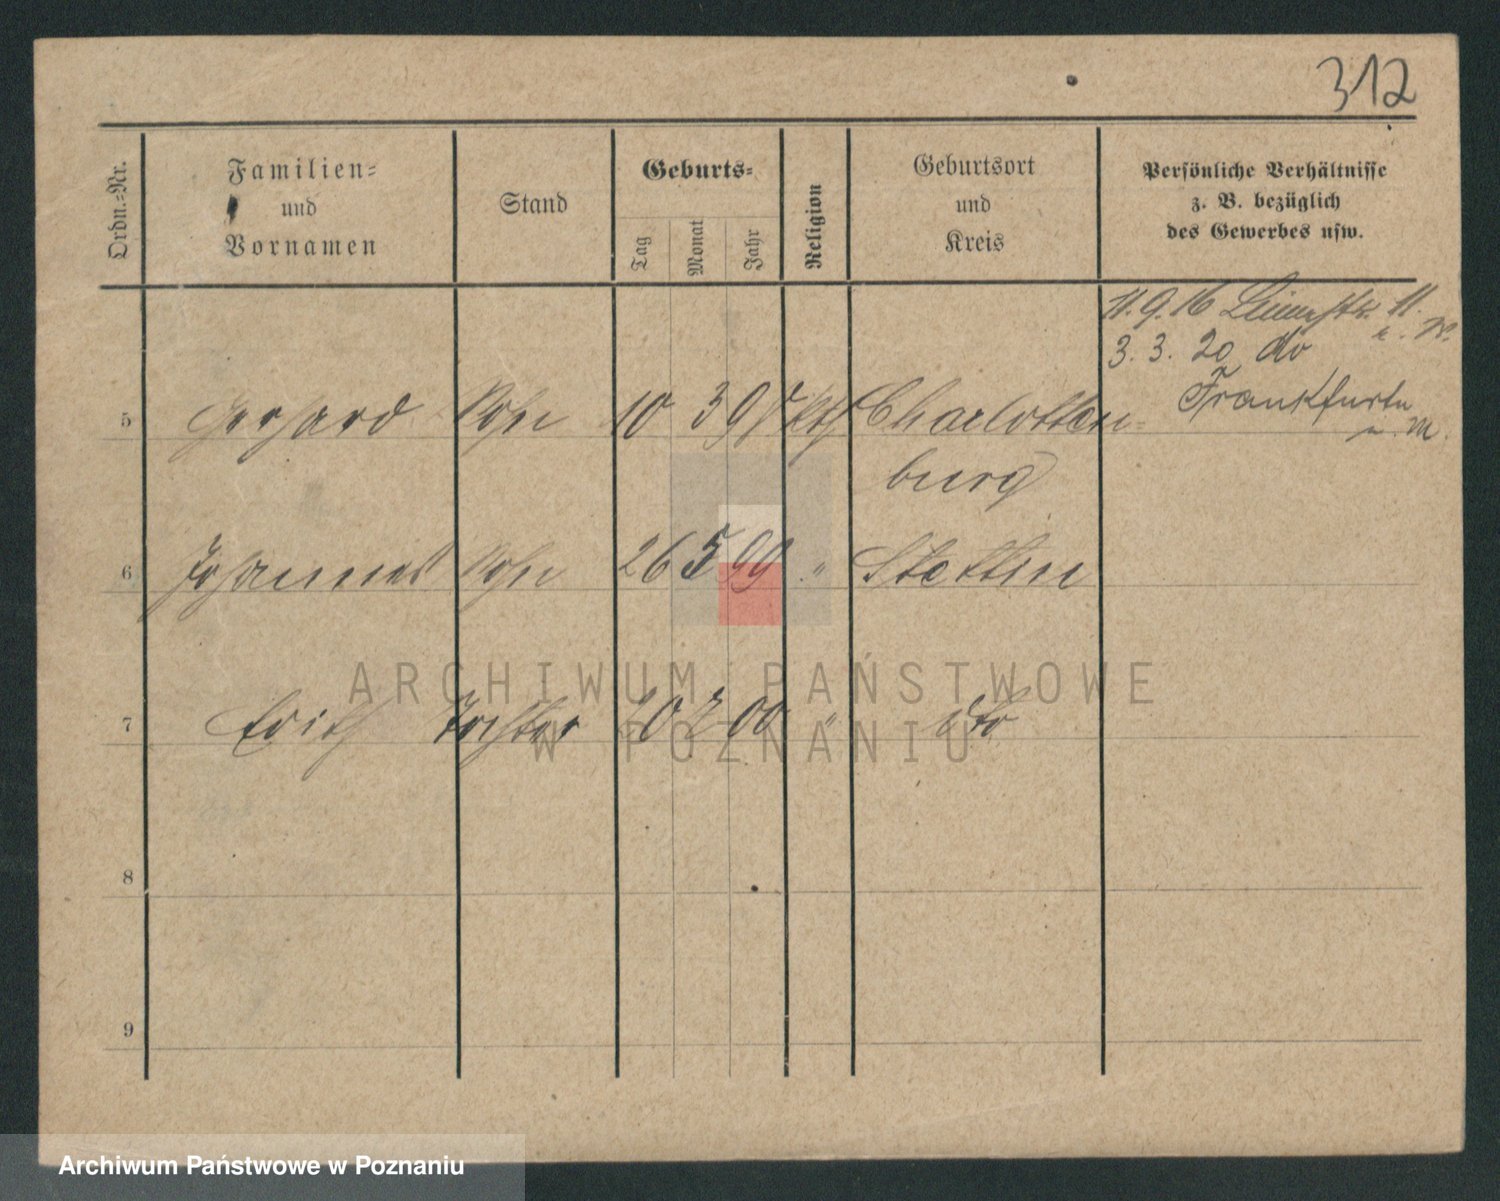 312
Ordn.-Nr.
Familien-
und
Vornamen
Stand
Geburts-
Tag
Monat
Jahr
Religion
Geburtsort
und
Kreis
Persönliche Verhältnisse
z. B. bezüglich
des Gewerbes usw.
11. 9. 16 11.
3. 3. 20 do
Frankfurt
5 Gerhard Sohn 10 3 98 kth Charlotten-
burg
6 Johannes Sohn 26 5 99 " Stettin
7 Edith Tochter 00 " dto
8
9
ARCHIWUM PAŃSTWOWE
W POZNANIU
Archiwum Państwowe w Poznaniu